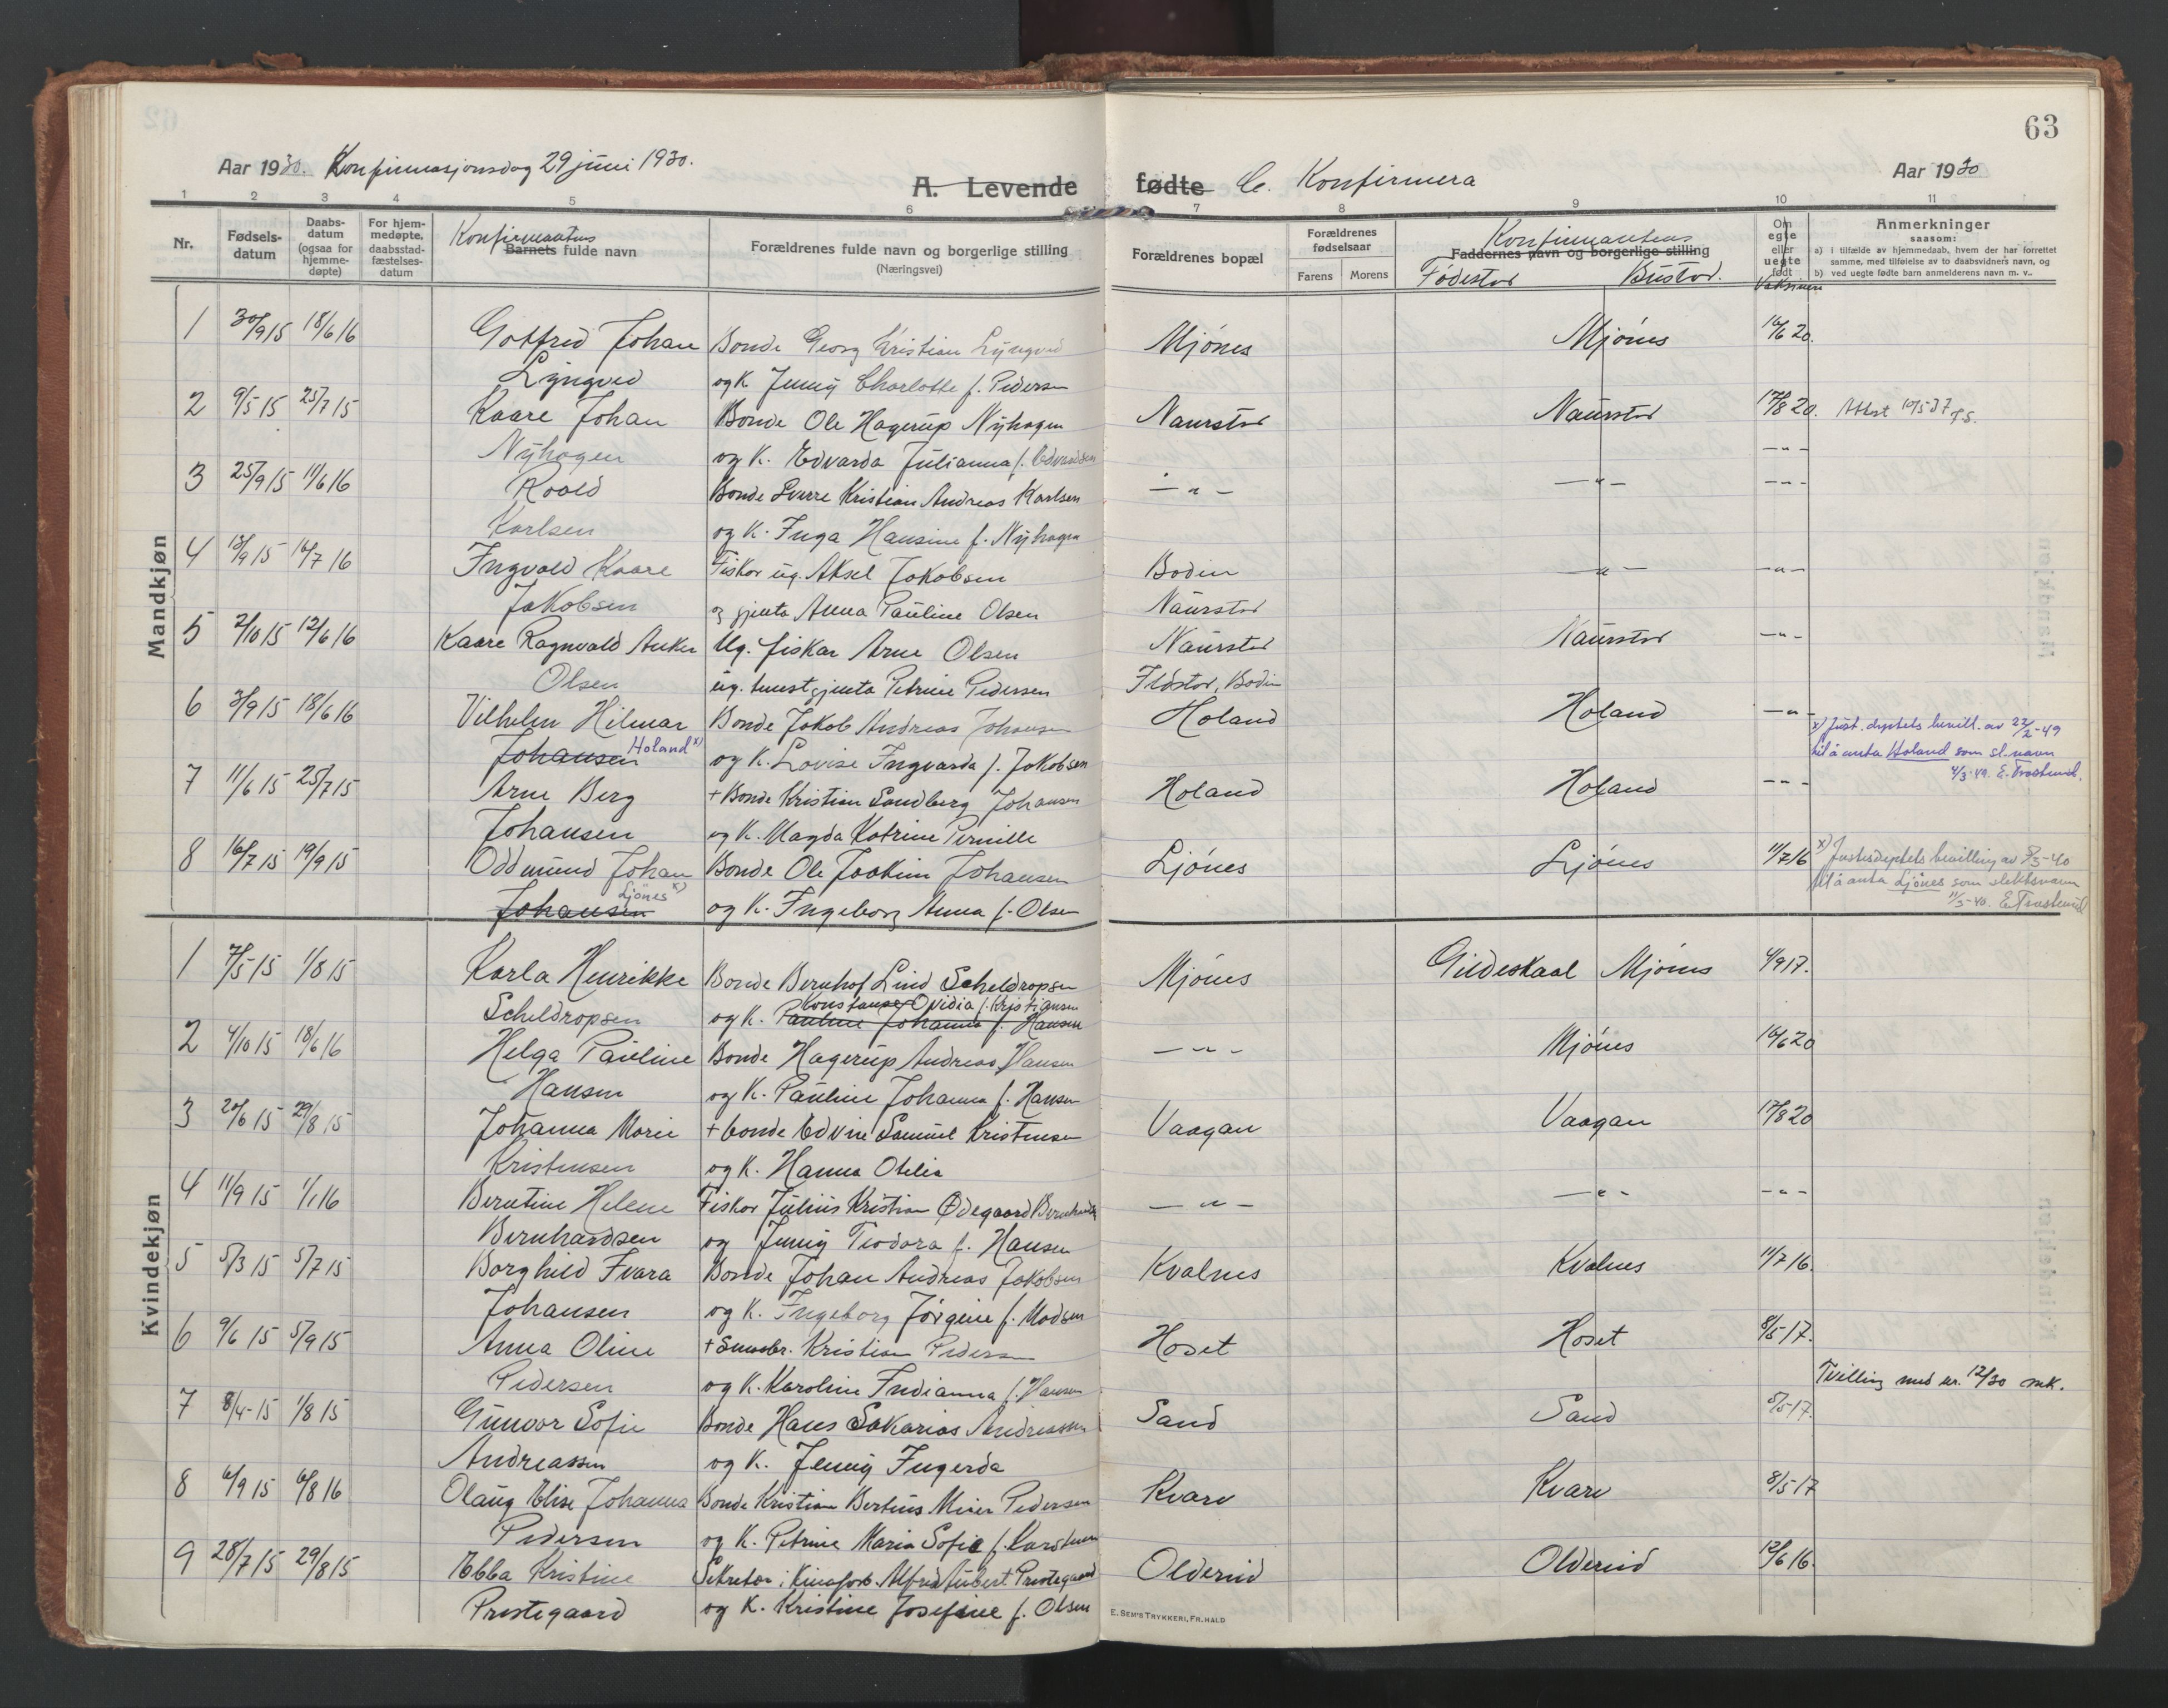 63
Aar 1930. Konfirmasjonsdag 29 juni 1930.
A. Levende fødte C. Konfirmera
Aar 1930
1 2 3 4 5 6 7 8 9 10 11
Nr.
Fødsels-datum
Daabs-datum (ogsaa for hjemme-døpte)
For hjem-medøpte, daabsstad-fæstelses-datum
Konfirmantens
Barnets fulde navn
Forældrenes fulde navn og borgerlige stilling
(Næringsvei)
Forældrenes bopæl
Forældrenes fødselsaar
Farens Morens
Konfirmantens
Faddernes navn og borgerlige stilling
Fødestad Bustad.
Om egte eller uegte født
Vaksinera
Anmerkninger
saasom:
a) i tilfælde av hjemmedaab, hvem der har forrettet samme, med tilføielse av to daabsvidners navn, og
b) ved uegte fødte barn anmelderens navn m. v..
Mandkjøn
1 30/9 15 18/6 16 Gotfred Johan Bonde Georg Kristian Lyngved Mjónes Mjónes 16/6 20.
Lyngved og K Jenny Charlotte f. Pedersen
2 9/5 15 25/7 15 Kaare Johan Bonde Ole Hagerup Nyhagen Naurstad Naurstad 17/8 20. Attest 10/5 37
Nyhagen og K. Edvarda Julianna f. Edvardsen — " —
3 25/9 15 11/6 16 Roald Bonde Sverre Kristian Andreas Karlsen — " — — " — — " —
Karlsen og K. Inga Hansine f. Nyhagen
4 13/9 15 16/7 16 Ingvald Kaare Fiskar ug. Aksel Jakobsen Bodin — " — — " —
Jakobsen og gjenta Anna Pauline Olsen Naurstad
5 2/10 15 12/6 16 Kaare Ragnvald Anker Ug. fiskar Arne Olsen Naurstad Naurstad — " —
Olsen ug. tenestgjenta Petrine Pedersen Fldstad, Bodin
6 3/9 15 18/6 16 Vilhelm Hilmar Bonde Jakob Andreas Johansen Holand Holand — " —
Johansen Holand x) og K. Lovise Ingvarda f. Jakobsen x) Just. dptets bevill. av 22/2-49
til å anta Holand som sl. navn
4/3-49. E. Trosterud.
7 11/6 15 25/7 15 Arne Berg + Bonde Kristian Sandberg Johansen Holand Holand — " —
Johansen og K. Magda Katrine Pernille
8 16/7 15 19/9 15 Oddmund Johan Bonde Ole Joakim Johansen Ljónes Ljónes 11/7 16 x) Justisdeptets bevilling av 5/3-40
Johansen Ljönes x) og K. Ingeborg Anna f. Olsen til å anta Ljönes som slektsnavn
11/3-40. E Trosterud
Kvindekjøn
1 7/5 15 1/8 15 Karla Henrikke Bonde Bernhof Lind Scheldropsen Mjónes Gildeskaal Mjónes 4/9 17.
Scheldropsen Konstanse Ovidia f. Kristiansen
og K. Pauline Johanna f. Hansen
2 4/10 15 18/6 16 Helga Pauline Bonde Hagerup Andreas Hansen — " — Mjónes 16/6 20
Hansen og K. Pauline Johanna f. Hansen
3 20/6 15 29/8 15 Johanna Marie + bonde Edvin Samuel Kristensen Vaagan Vaagan 17/8 20
Kristensen og K. Hanna Otelia
4 11/9 15 1/1 16 Berntine Helene Fiskar Julius Kristian Ødegaard Bernhardsen — " — — " — — " —
Bernhardsen og Jenny Teodora f. Hansen
5 5/3 15 5/7 15 Borghild Ivara Bonde Johan Andreas Jakobsen Kvalnes Kvalnes 11/7 16.
Johansen og K. Ingeborg Jørgine f. Madsen
6 9/6 15 5/9 15 Anna Oline + Smabr. Kristian Pedersen Hoset Hoset 8/5 17.
Pedersen og K. Karoline Indianna f. Hansen Tvilling med nr. 12/30 mk.
7 8/4-15 1/8 15 Gunvor Sofie Bonde Hans Sakarias Andreassen Sand Sand 8/5-17.
Andreassen og K. Jenny Ingerda
8 6/9 15 6/8 16 Olaug Elise Johanna Bonde Kristian Bertius Meier Pedersen Kvarv Kvarv 8/5-17
Pedersen og K. Petrine Maria Sofie f. Karstensen
9 28/7 15 29/8 15 Ebba Kristine Sekretær i Kinoforb. Alfred Hubert Prestegaard Oldereid Oldereid 12/6 16.
Prestegaard og K. Kristine Josefine f. Olsen
E. SEM'S TRYKKERI, FR. HALD